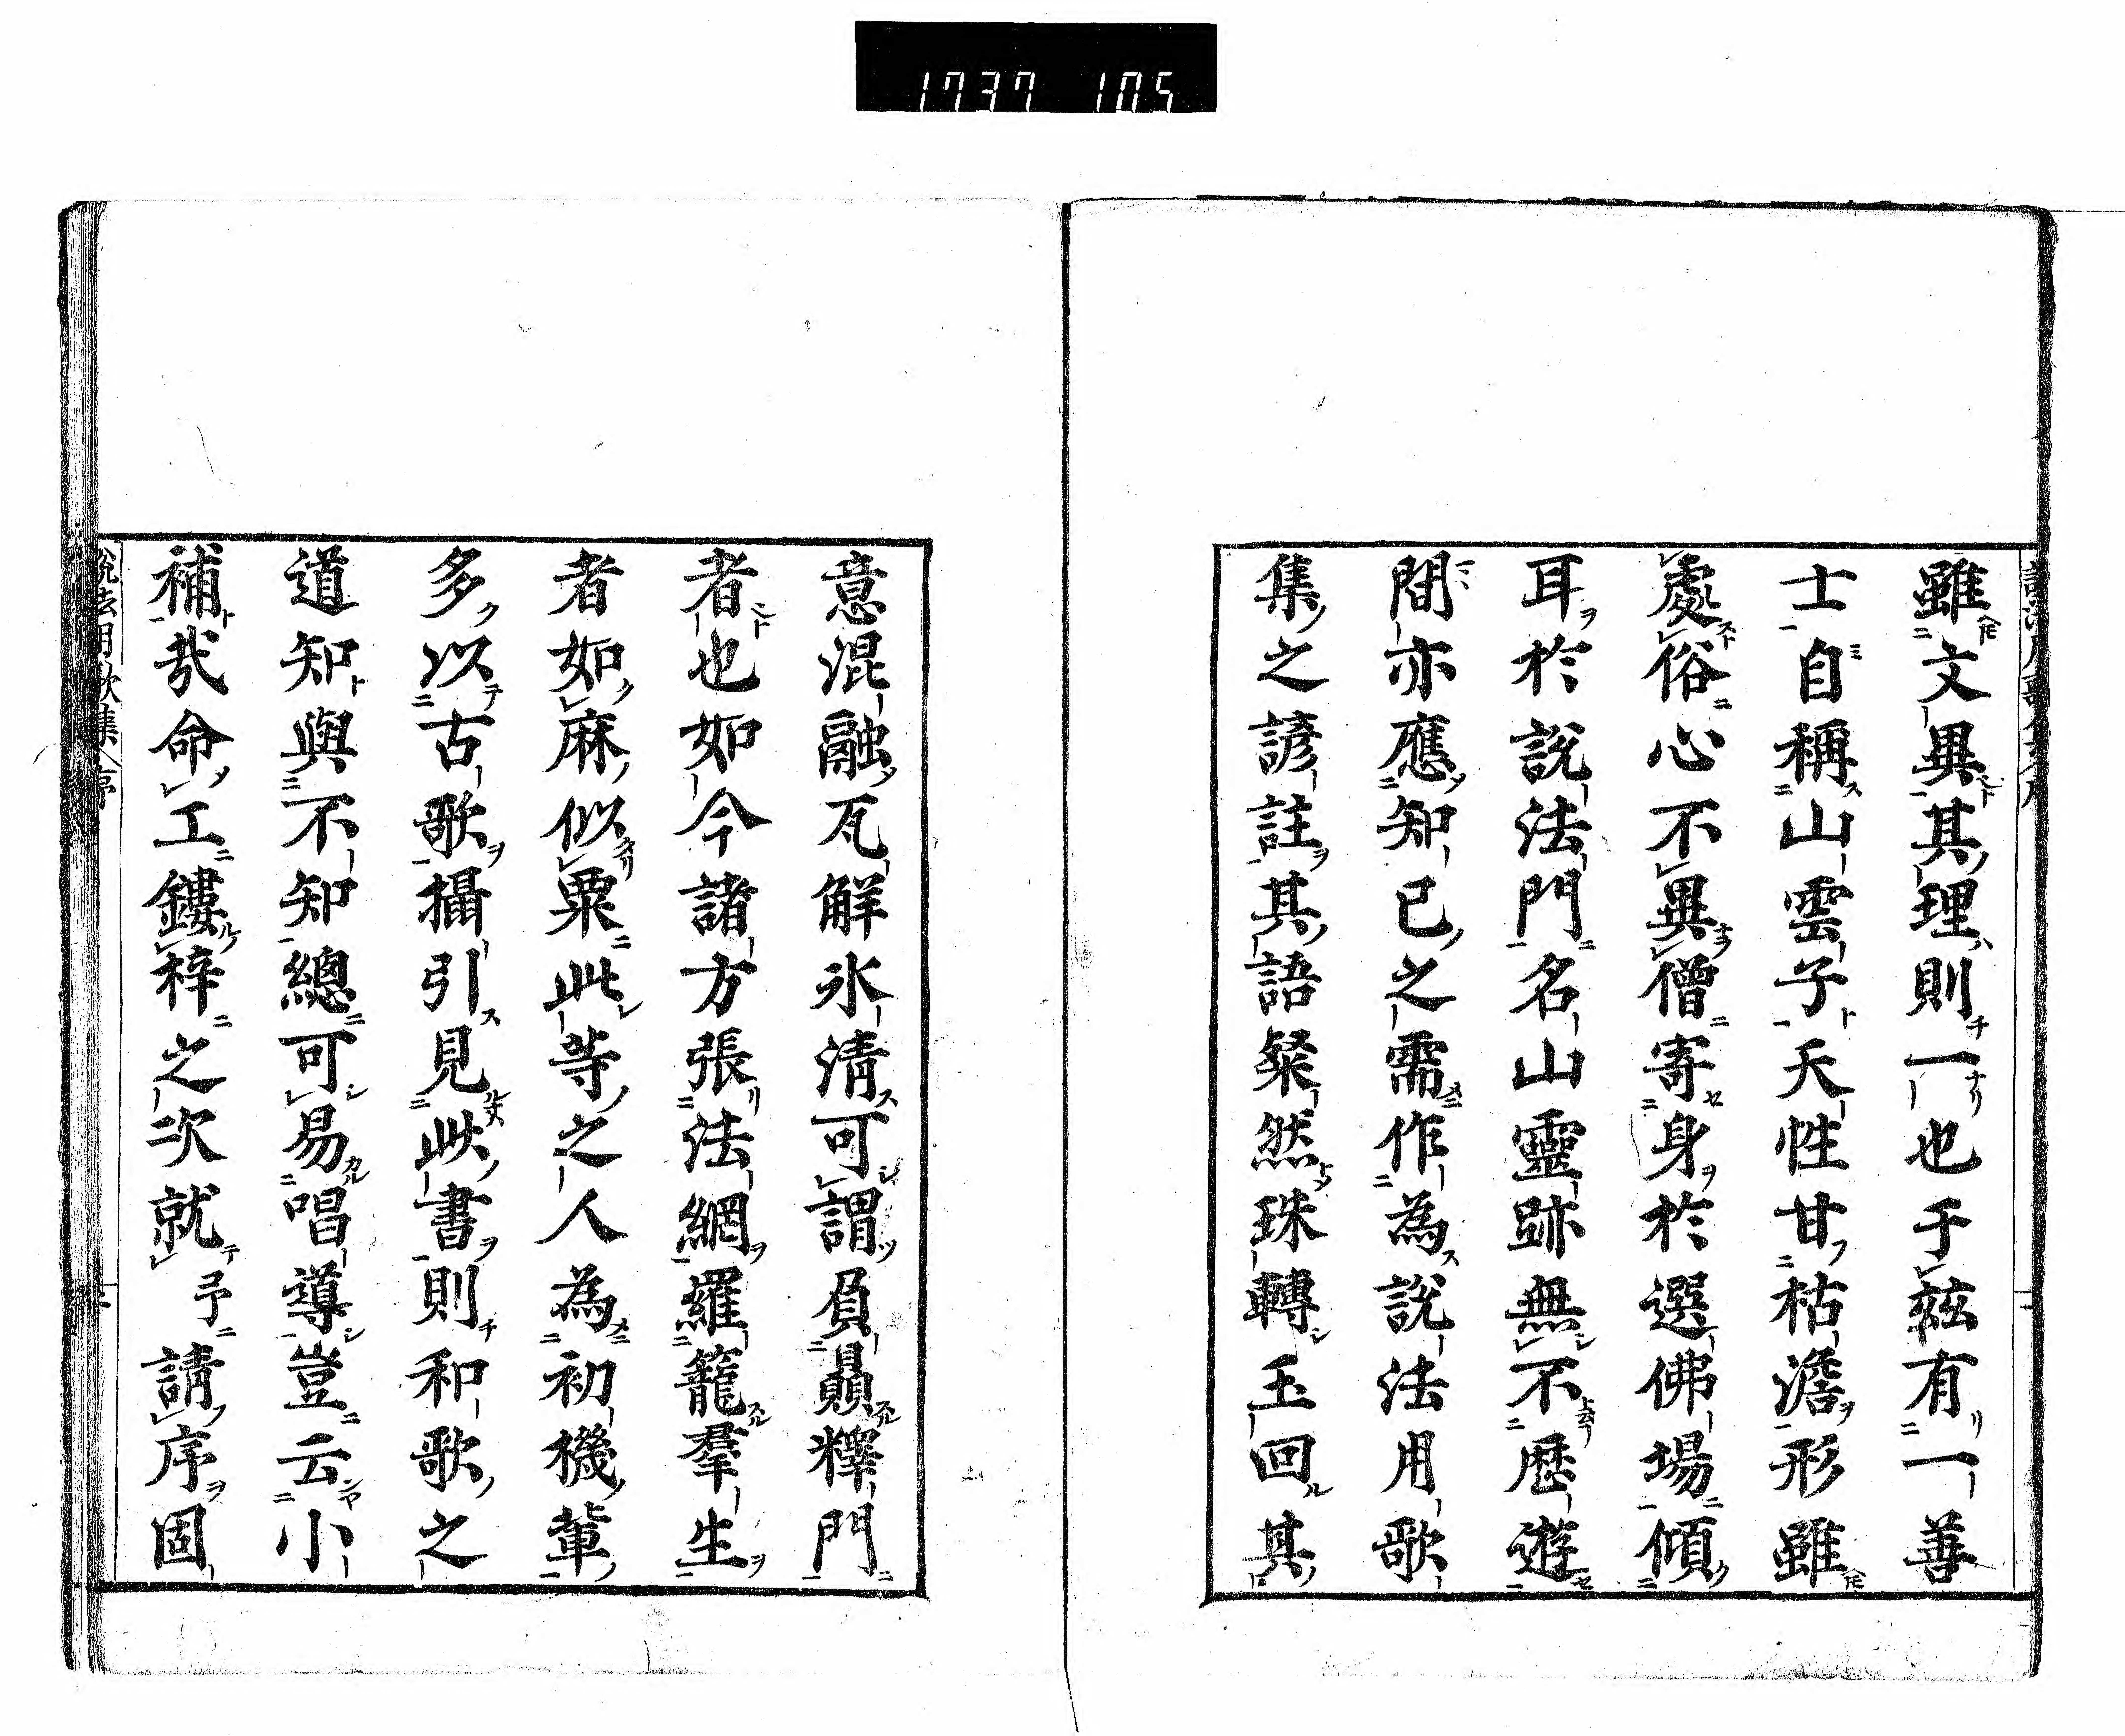 1737 105
雖文異其理則一也于茲有一善
士自稱山雲子天性甘枯澹形雖
處俗心不異僧寄身於選佛場傾
耳於説法門名山靈跡無不歴遊
間亦應知已之需作為説法用歌
集之諺註其語粲然珠轉玉回其
意混融瓦解氷清可謂負贔釋門
者也如今諸方張法網羅籠羣生
者如麻似粟此等之人為初機輩
多以古歌攝引見此書則和歌之
道知與不知總可易唱導豈云小
補哉命工鏤梓之次就予請序固
説法用歌集序